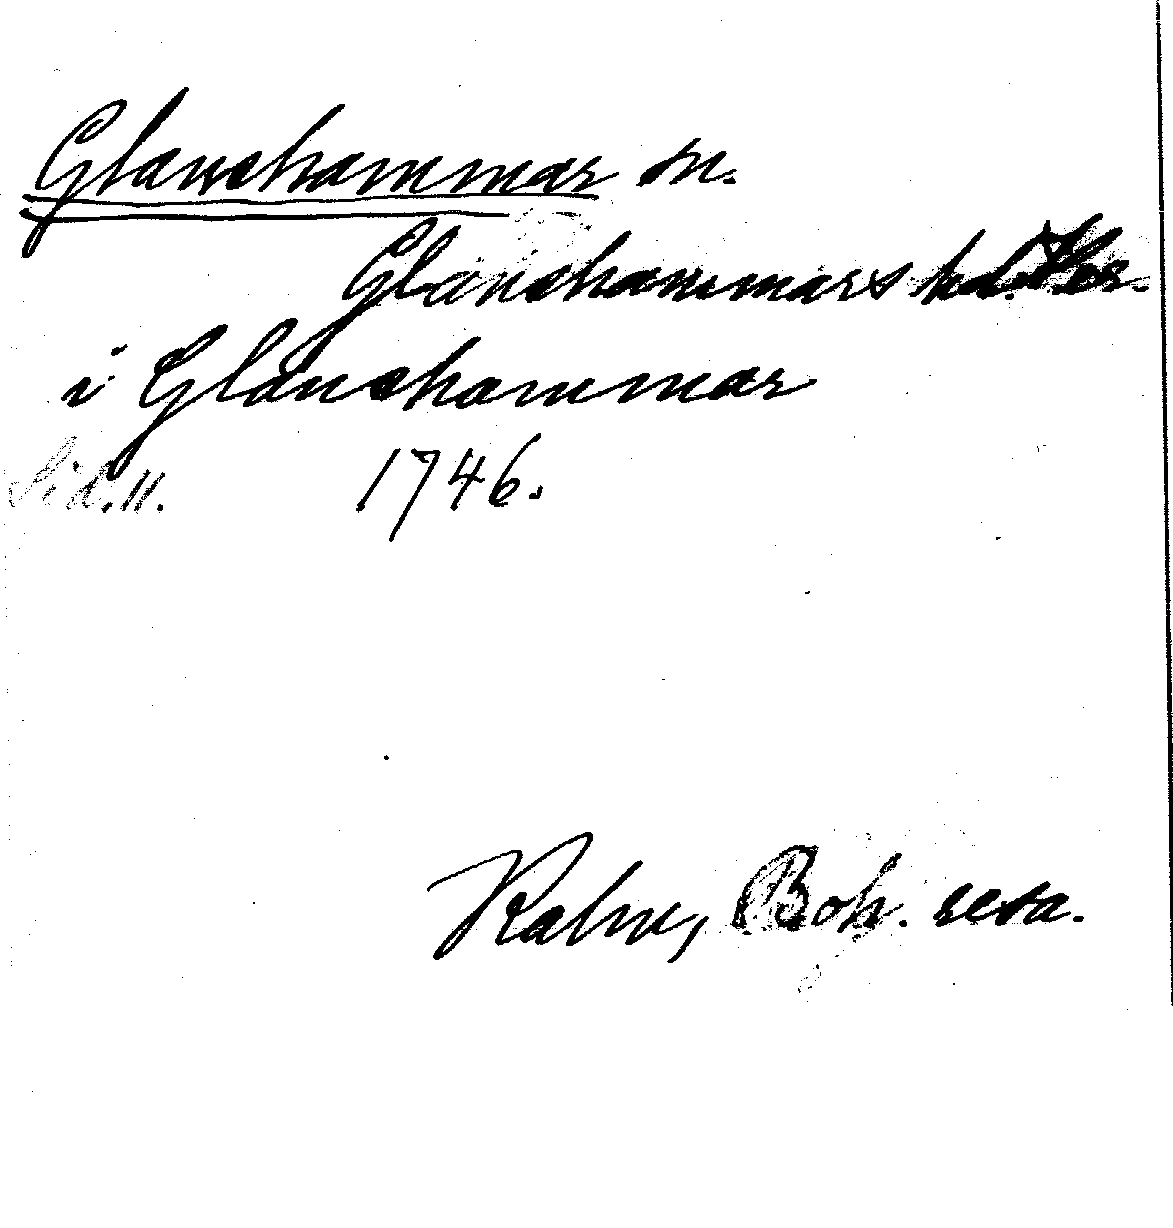 Glanshammar sn.
Glanshammars hd.
i Glanshammar
Sid. 11. 1746.
Kalm, Boh. resa.